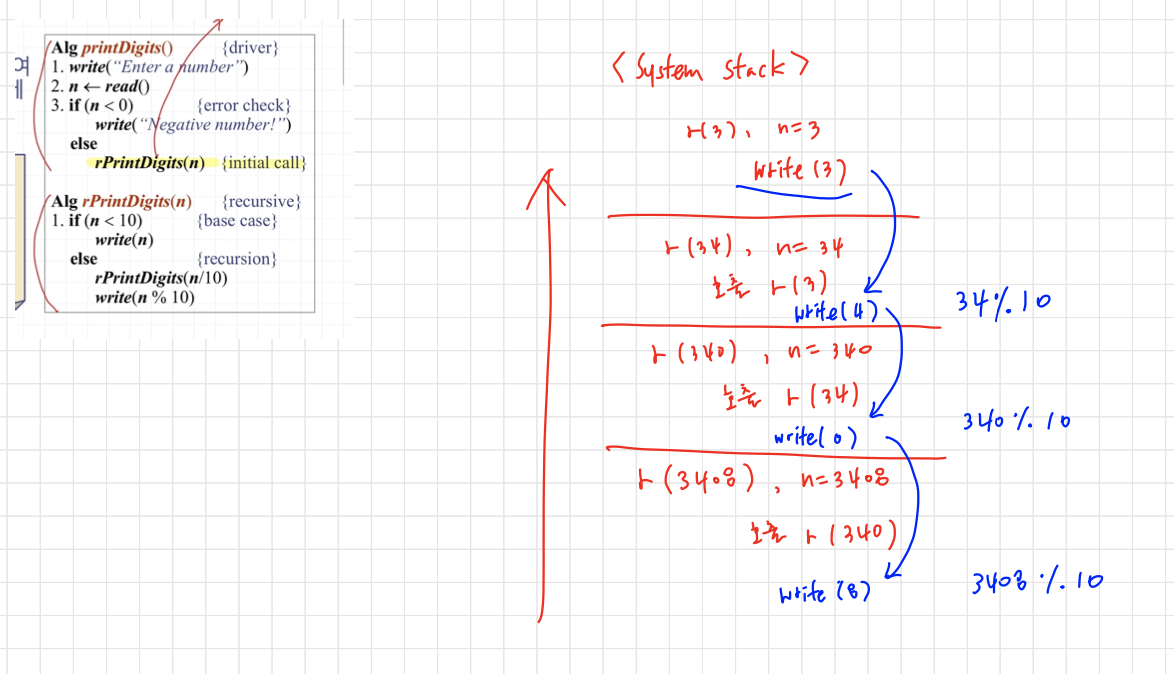 Alg printDigits() {driver}
1. write(“Enter a number”)
2. n ← read()
3. if (n < 0) {error check}
write(“Negative number!”)
else
rPrintDigits(n) {initial call}
Alg rPrintDigits(n) {recursive}
1. if (n < 10) {base case}
write(n)
else {recursion}
rPrintDigits(n/10)
write(n % 10)
<System stack>
r(3), n=3
write(3)
r(34), n=34
호출 r(3)
write(4)
34%10
r(340), n=340
호출 r(34)
write(0)
340%10
r(3408), n=3408
호출 r(340)
write(8)
3408%10